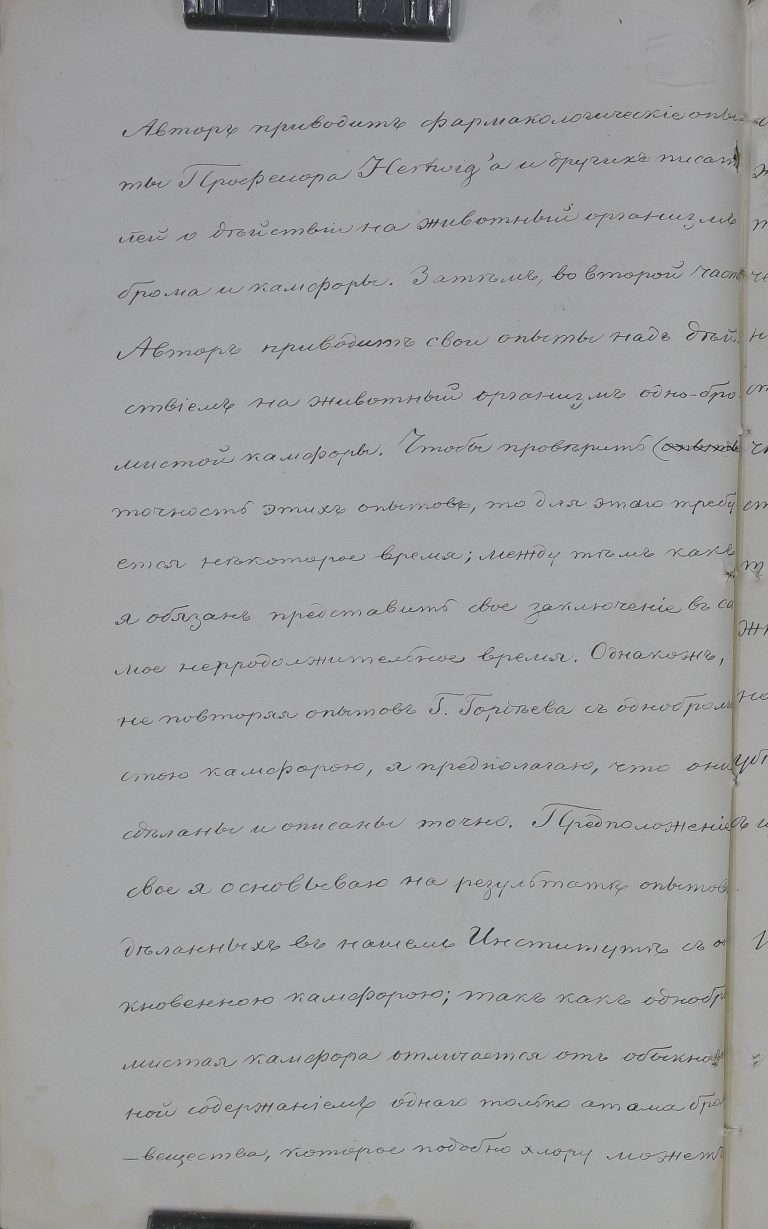 Авторъ приводитъ фармакологическіе опы-
ты Професора Hertwig'a и другихъ писат
лей о дѣйствіи на животный организмъ
брома и камфоры. Затѣмъ, во второй част
Авторъ приводитъ свои опыты надъ дѣй-
ствіемъ на животный организмъ одно-бро-
мистой камфоры. Чтобы провѣрить (опыты
точность этихъ опытовъ, то для этаго требу
ется нѣкоторое время; между тѣмъ какъ
я обязанъ представить свое заключеніе въ са
мое непродолжительное время. Однакожъ,
не повторяя опытовъ Г. Гордѣева съ однобром
стою камфорою, я предполагаю, что они
сдѣланы и описаны точно. Предположеніе
свое я основываю на результатѣ опытов
дѣланныхъ въ нашемъ Институтѣ съ о
кновенною камфорою; такъ какъ однобр
мистая камфора отличается отъ обыкнов
ной содержаніемъ однаго только атама бро
-вещества, которое подобно хлору можетъ